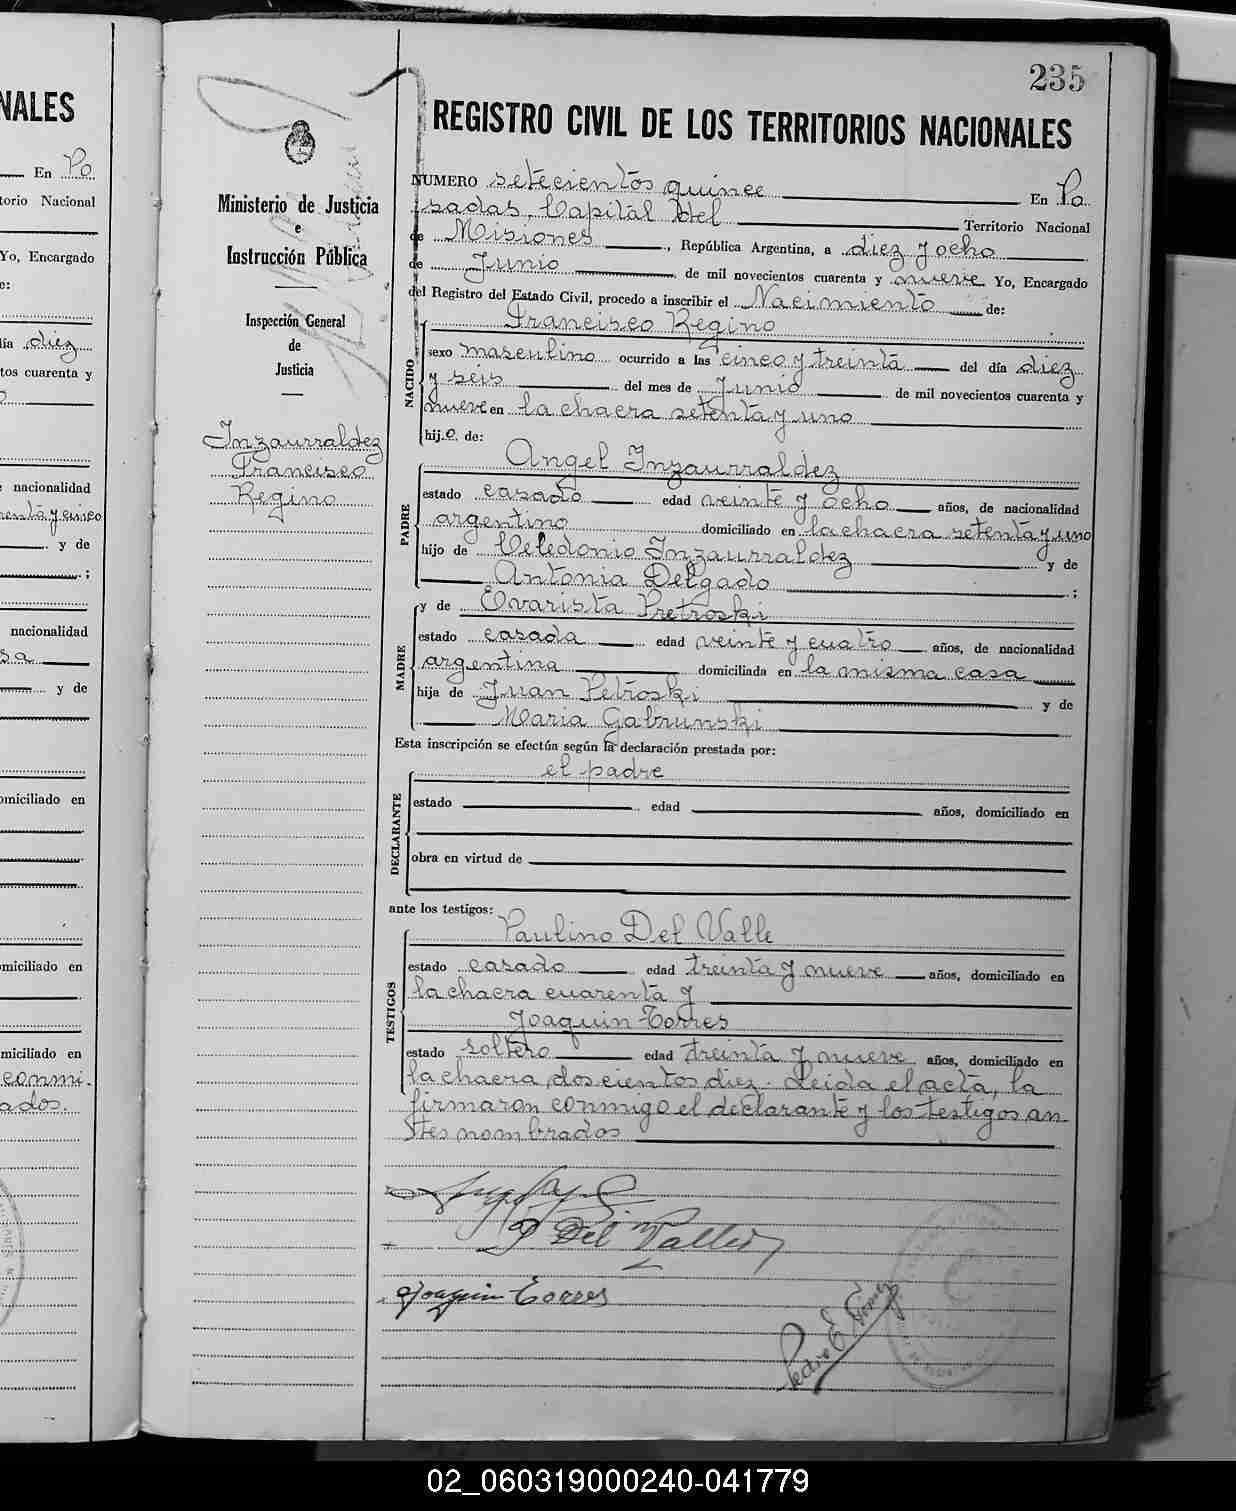 NALES
En Po
torio Nacional
Yo, Encargado
e:
día diez
tos cuarenta y
nacionalidad
y de
;
nacionalidad
y de
omiciliado en
omiciliado en
miciliado en
conmi-
ados.
235
REGISTRO CIVIL DE LOS TERRITORIOS NACIONALES
Ministerio de Justicia
e
Instrucción Pública
Inspección General
de
Justicia
Inzaurraldez
Francisco
Regino
NUMERO setecientos quince En Po
sadas, Capital del Territorio Nacional
de Misiones, República Argentina, a diez y ocho
de Junio de mil novecientos cuarenta y nueve Yo, Encargado
del Registro del Estado Civil, procedo a inscribir el Nacimiento de:
Francisco Regino
NACIDO
sexo masculino ocurrido a las cinco y treinta del día diez
y seis del mes de Junio de mil novecientos cuarenta y
nueve en la chacra setenta y uno
hijo de:
Angel Inzaurraldez
PADRE
estado casado edad veinte y ocho años, de nacionalidad
argentino domiciliado en la chacra setenta y uno
hijo de Celedonio Inzaurraldez y de
Antonia Delgado ;
y de Evarista Pretroski
MADRE
estado casada edad veinte y cuatro años, de nacionalidad
argentina domiciliada en la misma casa
hija de Juan Petroski y de
Maria Gabrunski
Esta inscripción se efectúa según la declaración prestada por:
el padre
DECLARANTE
estado edad años, domiciliado en
obra en virtud de
ante los testigos:
Paulino Del Valle
TESTIGOS
estado casado edad treinta y nueve años, domiciliado en
la chacra cuarenta y
Joaquin Torres
estado soltero edad treinta y nueve años, domiciliado en
la chacra doscientos diez. Leida el acta, la
firmaron conmigo el declarante y los testigos an
tes nombrados
P Del Valle
Joaquin Torres
Pedro E Gomez
02_060319000240-041779